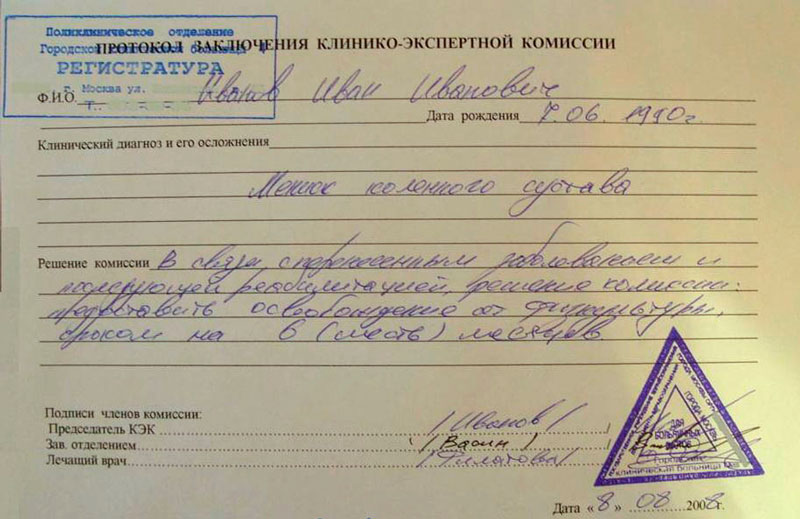 Поликлиническое отделение
Городской клинической больницы
РЕГИСТРАТУРА
г. Москва ул.
Т.
ПРОТОКОЛ ЗАКЛЮЧЕНИЯ КЛИНИКО-ЭКСПЕРТНОЙ КОМИССИИ
Ф.И.О. Иванов Иван Иванович
Дата рождения 7.06. 1990г.
Клинический диагноз и его осложнения
коленного сустава
Решение комиссии В связи с перенесенным заболеванием и
последующей реабилитацией, решение комиссии:
предоставить освобождение от физкультуры,
сроком на 6 (шесть) месяцев.
Подписи членов комиссии:
Председатель КЭК /Иванов/
Зав. отделением (Васин)
Лечащий врач /Филатова/
ДЛЯ
БОЛЬНИЧНЫХ
ЛИСТКОВ
ГОРОДА МОСКВЫ
Городская
клиническая больница
Дата «8» 08 2008г.